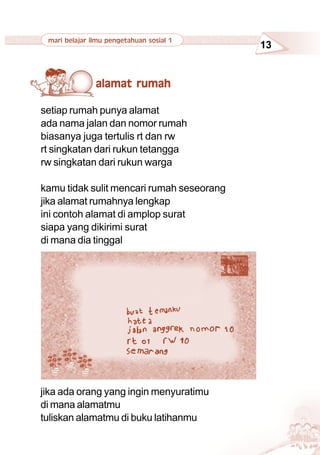 mari belajar ilmu pengetahuan sosial 1
13
alamat rumah
setiap rumah punya alamat
ada nama jalan dan nomor rumah
biasanya juga tertulis rt dan rw
rt singkatan dari rukun tetangga
rw singkatan dari rukun warga
kamu tidak sulit mencari rumah seseorang
jika alamat rumahnya lengkap
ini contoh alamat di amplop surat
siapa yang dikirimi surat
di mana dia tinggal
buat temanku
hatta
jalan anggrek nomor 10
rt 01 rw 10
semarang
jika ada orang yang ingin menyuratimu
di mana alamatmu
tuliskan alamatmu di buku latihanmu